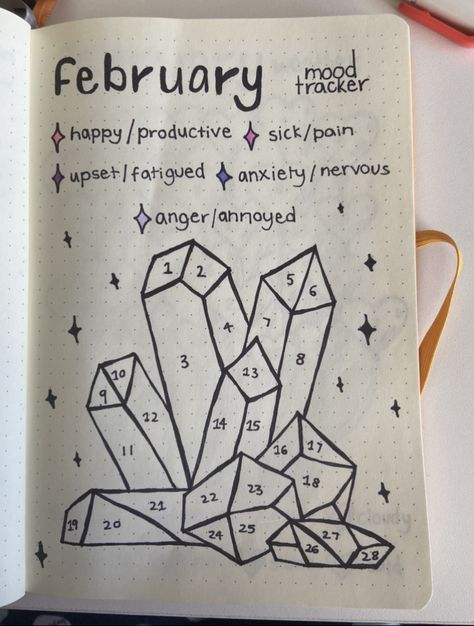 february mood
tracker
happy/productive sick/pain
upset/fatigued anxiety/nervous
anger/annoyed
1 2
5 6
3 4 7 8
10
9
13
12
11
14 15
16 17
18
22 23
21
19 20
24 25
27
26 28
cloudy